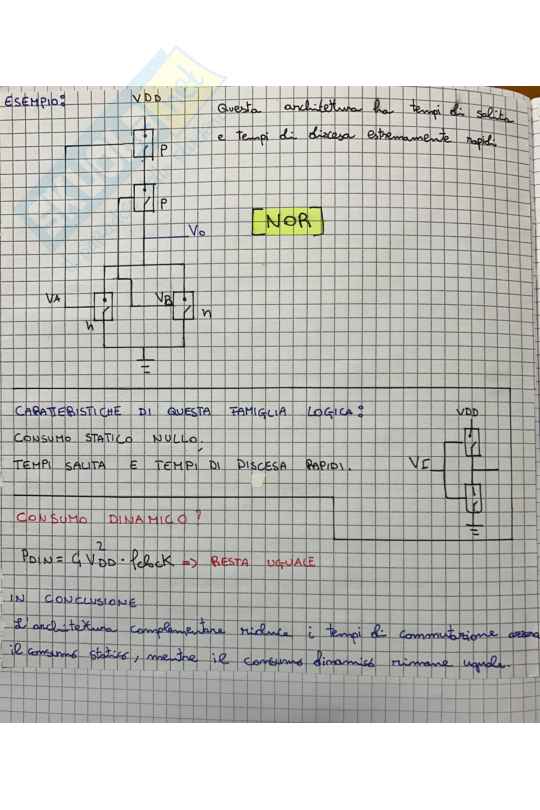 ESEMPIO:
VDD
Questa architettura ha tempi di salita
e tempi di discesa estremamente rapidi
P
P
Vo
[NOR]
VA
VB
n
n
CARATTERISTICHE DI QUESTA FAMIGLIA LOGICA:
CONSUMO STATICO NULLO.
TEMPI SALITA E TEMPI DI DISCESA RAPIDI.
VDD
VI
CONSUMO DINAMICO?
PDIN = C VDD² · fclock => RESTA UGUALE
IN CONCLUSIONE
L'architettura complementare riduce i tempi di commutazione
il consumo statico, mentre il consumo dinamico rimane uguale.